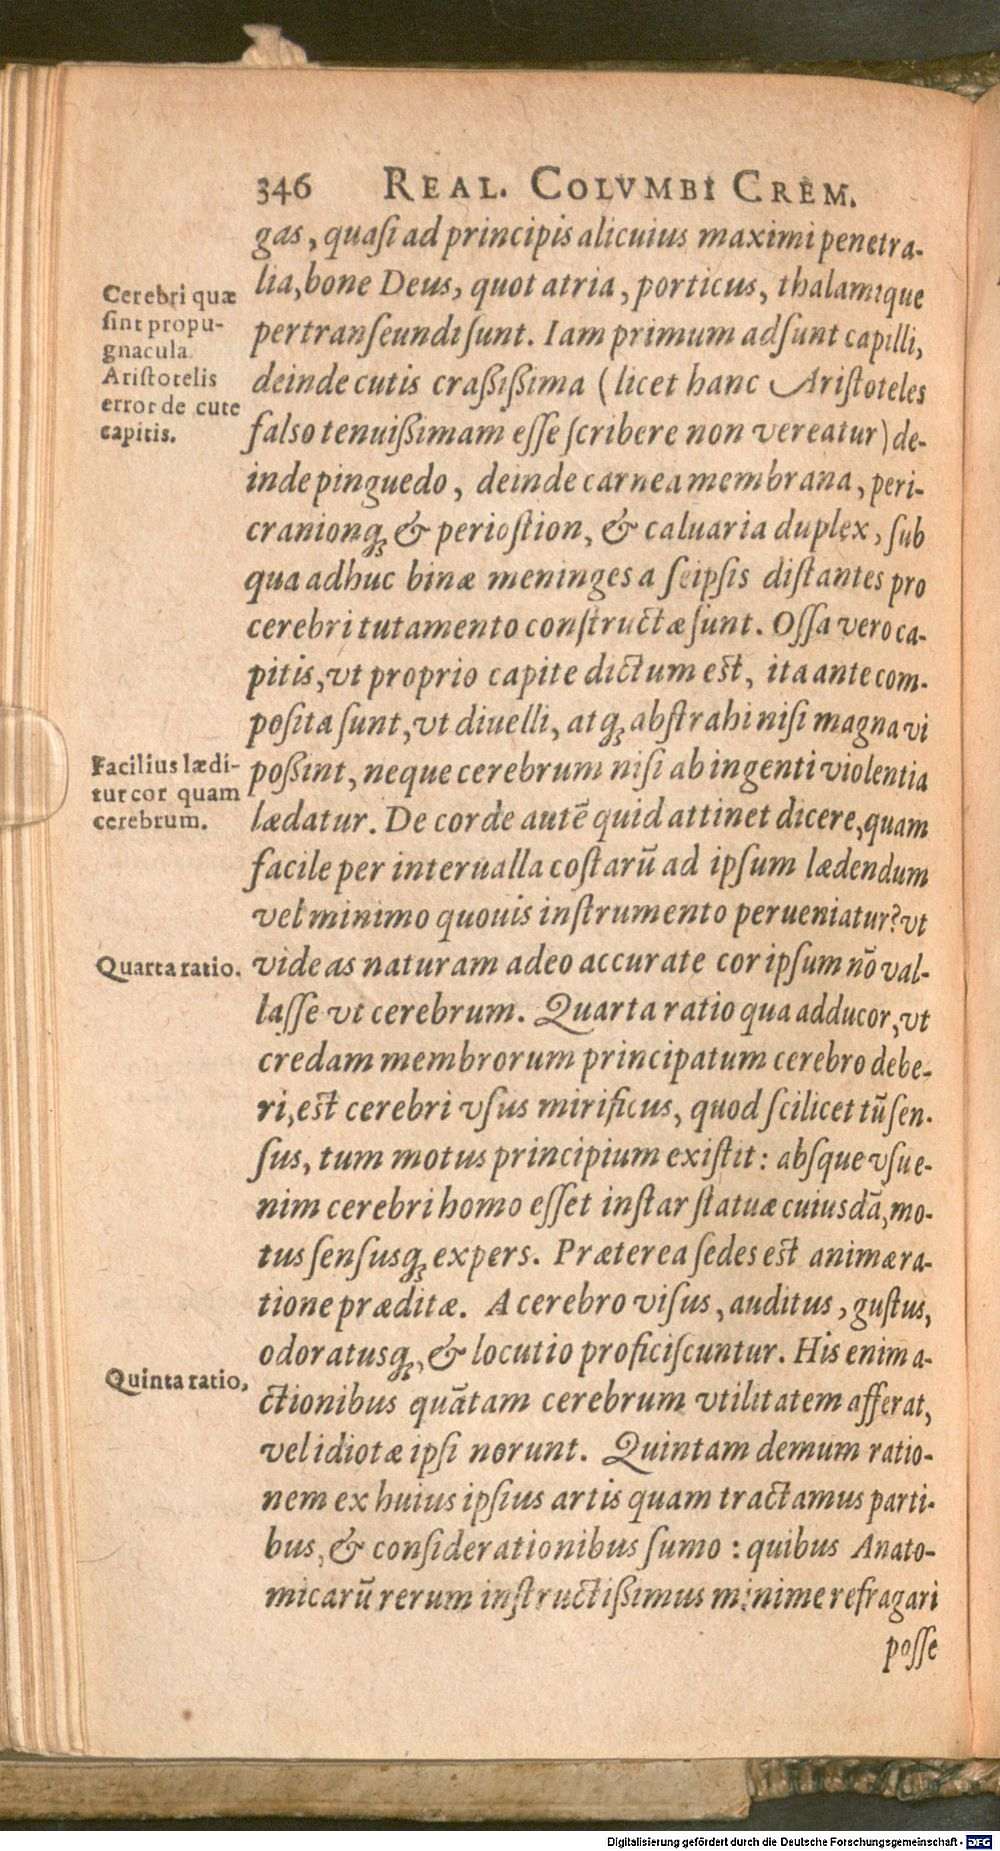 346 REAL. COLVMBI CREM.
gas, quaſi ad principis alicuius maximi penetra-
lia, bone Deus, quot atria, porticus, thalamique
pertranſeundi ſunt. Iam primum adſunt capilli,
deinde cutis craßißima (licet hanc Ariſtoteles
falso tenuißimam eſſe ſcribere non vereatur) de-
inde pinguedo, deinde carnea membrana, peri-
cranionq́ꝫ & perioſtion, & caluaria duplex, ſub
qua adhuc binæ meninges a ſeipſis diſtantes pro
cerebri tutamento conſtructæ ſunt. Oſſa vero ca-
pitis, vt proprio capite dictum est, ita ante com-
poſita ſunt, vt diuelli, atqꝫ abſtrahi niſi magna vi
poßint, neque cerebrum niſi ab ingenti violentia
lædatur. De corde autē quid attinet dicere, quam
facile per interualla coſtarū ad ipſum lædendum
vel minimo quouis inſtrumento perueniatur? vt
videas naturam adeo accurate cor ipſum nō val-
laſſe vt cerebrum. Quarta ratio qua adducor, vt
credam membrorum principatum cerebro debe-
ri, est cerebri vſus mirificus, quod ſcilicet tū ſen-
ſus, tum motus principium exiſtit: abſque vſu e-
nim cerebri homo eſſet inſtar ſtatuæ cuiusdā, mo-
tus ſenſusqꝫ expers. Præterea ſedes est animæ ra-
tione præditæ. A cerebro viſus, auditus, guſtus,
odoratusqꝫ, & locutio proficiſcuntur. His enim a-
ctionibus quātam cerebrum vtilitatem afferat,
vel idiotæ ipſi norunt. Quintam demum ratio-
nem ex huius ipſius artis quam tractamus parti-
bus, & conſiderationibus ſumo: quibus Anato-
micarū rerum inſtructißimus minime refragari
poſſe
Cerebri quæ
ſint propu-
gnacula.
Ariſtotelis
error de cute
capitis.
Facilius lædi-
tur cor quam
cerebrum.
Quarta ratio.
Quinta ratio.
Digitalisierung gefördert durch die Deutsche Forschungsgemeinschaft - DFG